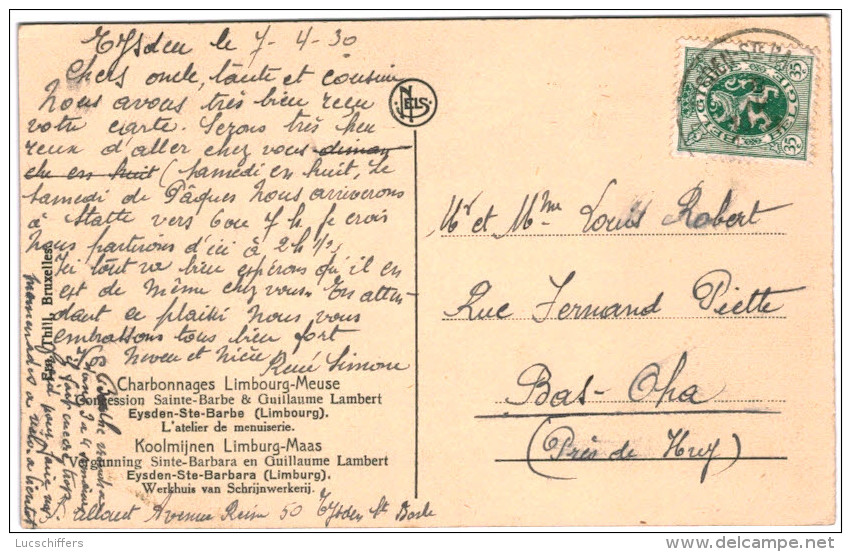 Eysden le 7-4-30
Chers oncle, tante et cousin
Nous avons très bien reçu
votre carte. Serons très heu
reux d'aller chez vous diman
che en huit (samedi en huit, le
samedi de Pâques nous arriverons
à Statte vers 6 ou 7 h. je crois
nous partirons d'ici à 2 h 1/2
Ici tout va bien espérons qu'il en
est de même chez vous. En atten
dant ce plaisir nous vous
embrassons tous bien fort
Neveu et Nièce
René Simone
NELS
Charbonnages Limbourg-Meuse
Concession Sainte-Barbe & Guillaume Lambert
Eysden-Ste-Barbe (Limbourg).
L'atelier de menuiserie.
Koolmijnen Limburg-Maas
Vergunning Sinte-Barbara en Guillaume Lambert
Eysden-Ste-Barbara (Limburg).
Werkhuis van Schrijnwerkerij.
Avenue Reine 50 Eysden St Barbe
Thill, Bruxelles.
promenades à vélo à bientôt
35c 35c
BELGIE BELGIQUE
Mr et Mme Louis Robert
Rue Fernand Piette
Bas-Oha
(Près de Huy)
© Lucschiffers
www.delcampe.net